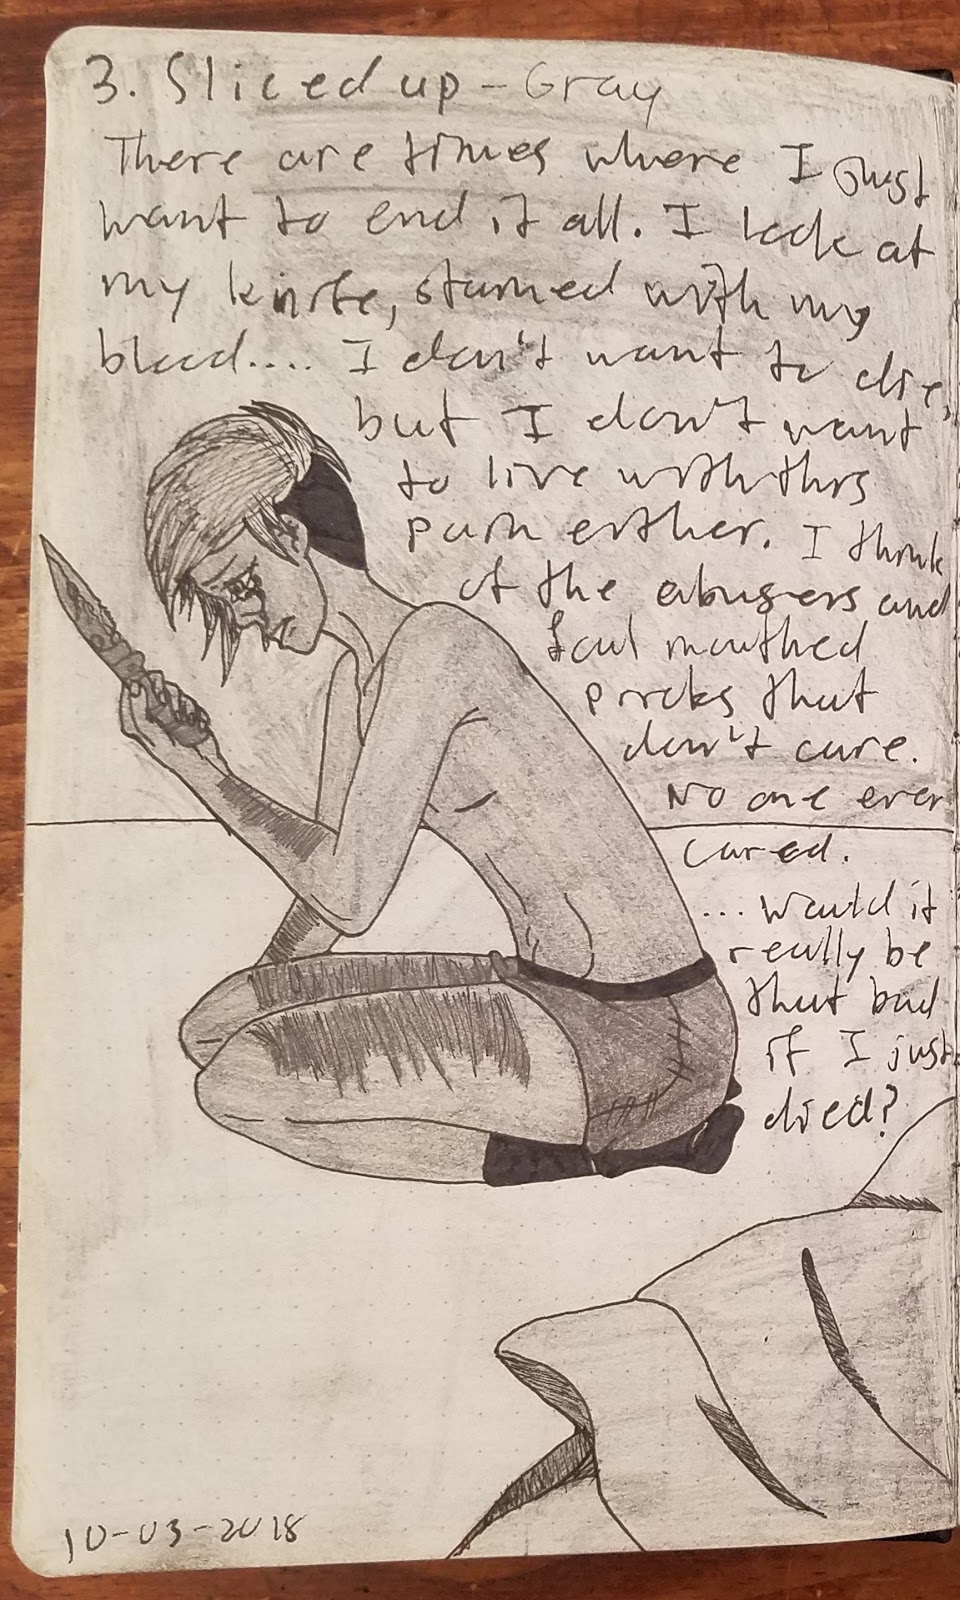 3. Sliced up - Gray
There are times where I just
want to end it all. I look at
my knife, stained with my
blood.... I don't want to die,
but I don't want
to live with this
pain either. I think
of the abusers and
foul mouthed
pricks that
don't care.
No one ever
cared.
... Would it
really be
that bad
if I just
died?
10-03-2018